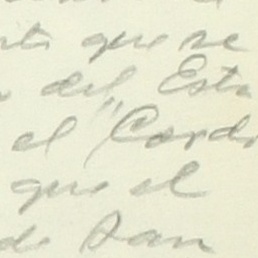 que se
del Esta
el "Cordo
que el
de San